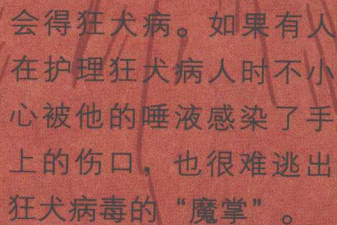 会得狂犬病。如果有人
在护理狂犬病人时不小
心被他的唾液感染了手
上的伤口，也很难逃出
狂犬病毒的“魔掌”。